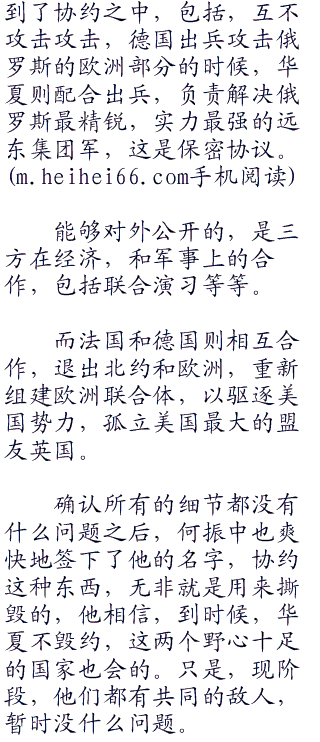 到了协约之中，包括，互不
攻击攻击，德国出兵攻击俄
罗斯的欧洲部分的时候，华
夏则配合出兵，负责解决俄
罗斯最精锐，实力最强的远
东集团军，这是保密协议。
(m.heihei66.com手机阅读)
能够对外公开的，是三
方在经济，和军事上的合
作，包括联合演习等等。
而法国和德国则相互合
作，退出北约和欧洲，重新
组建欧洲联合体，以驱逐美
国势力，孤立美国最大的盟
友英国。
确认所有的细节都没有
什么问题之后，何振中也爽
快地签下了他的名字，协约
这种东西，无非就是用来撕
毁的，他相信，到时候，华
夏不毁约，这两个野心十足
的国家也会的。只是，现阶
段，他们都有共同的敌人，
暂时没什么问题。